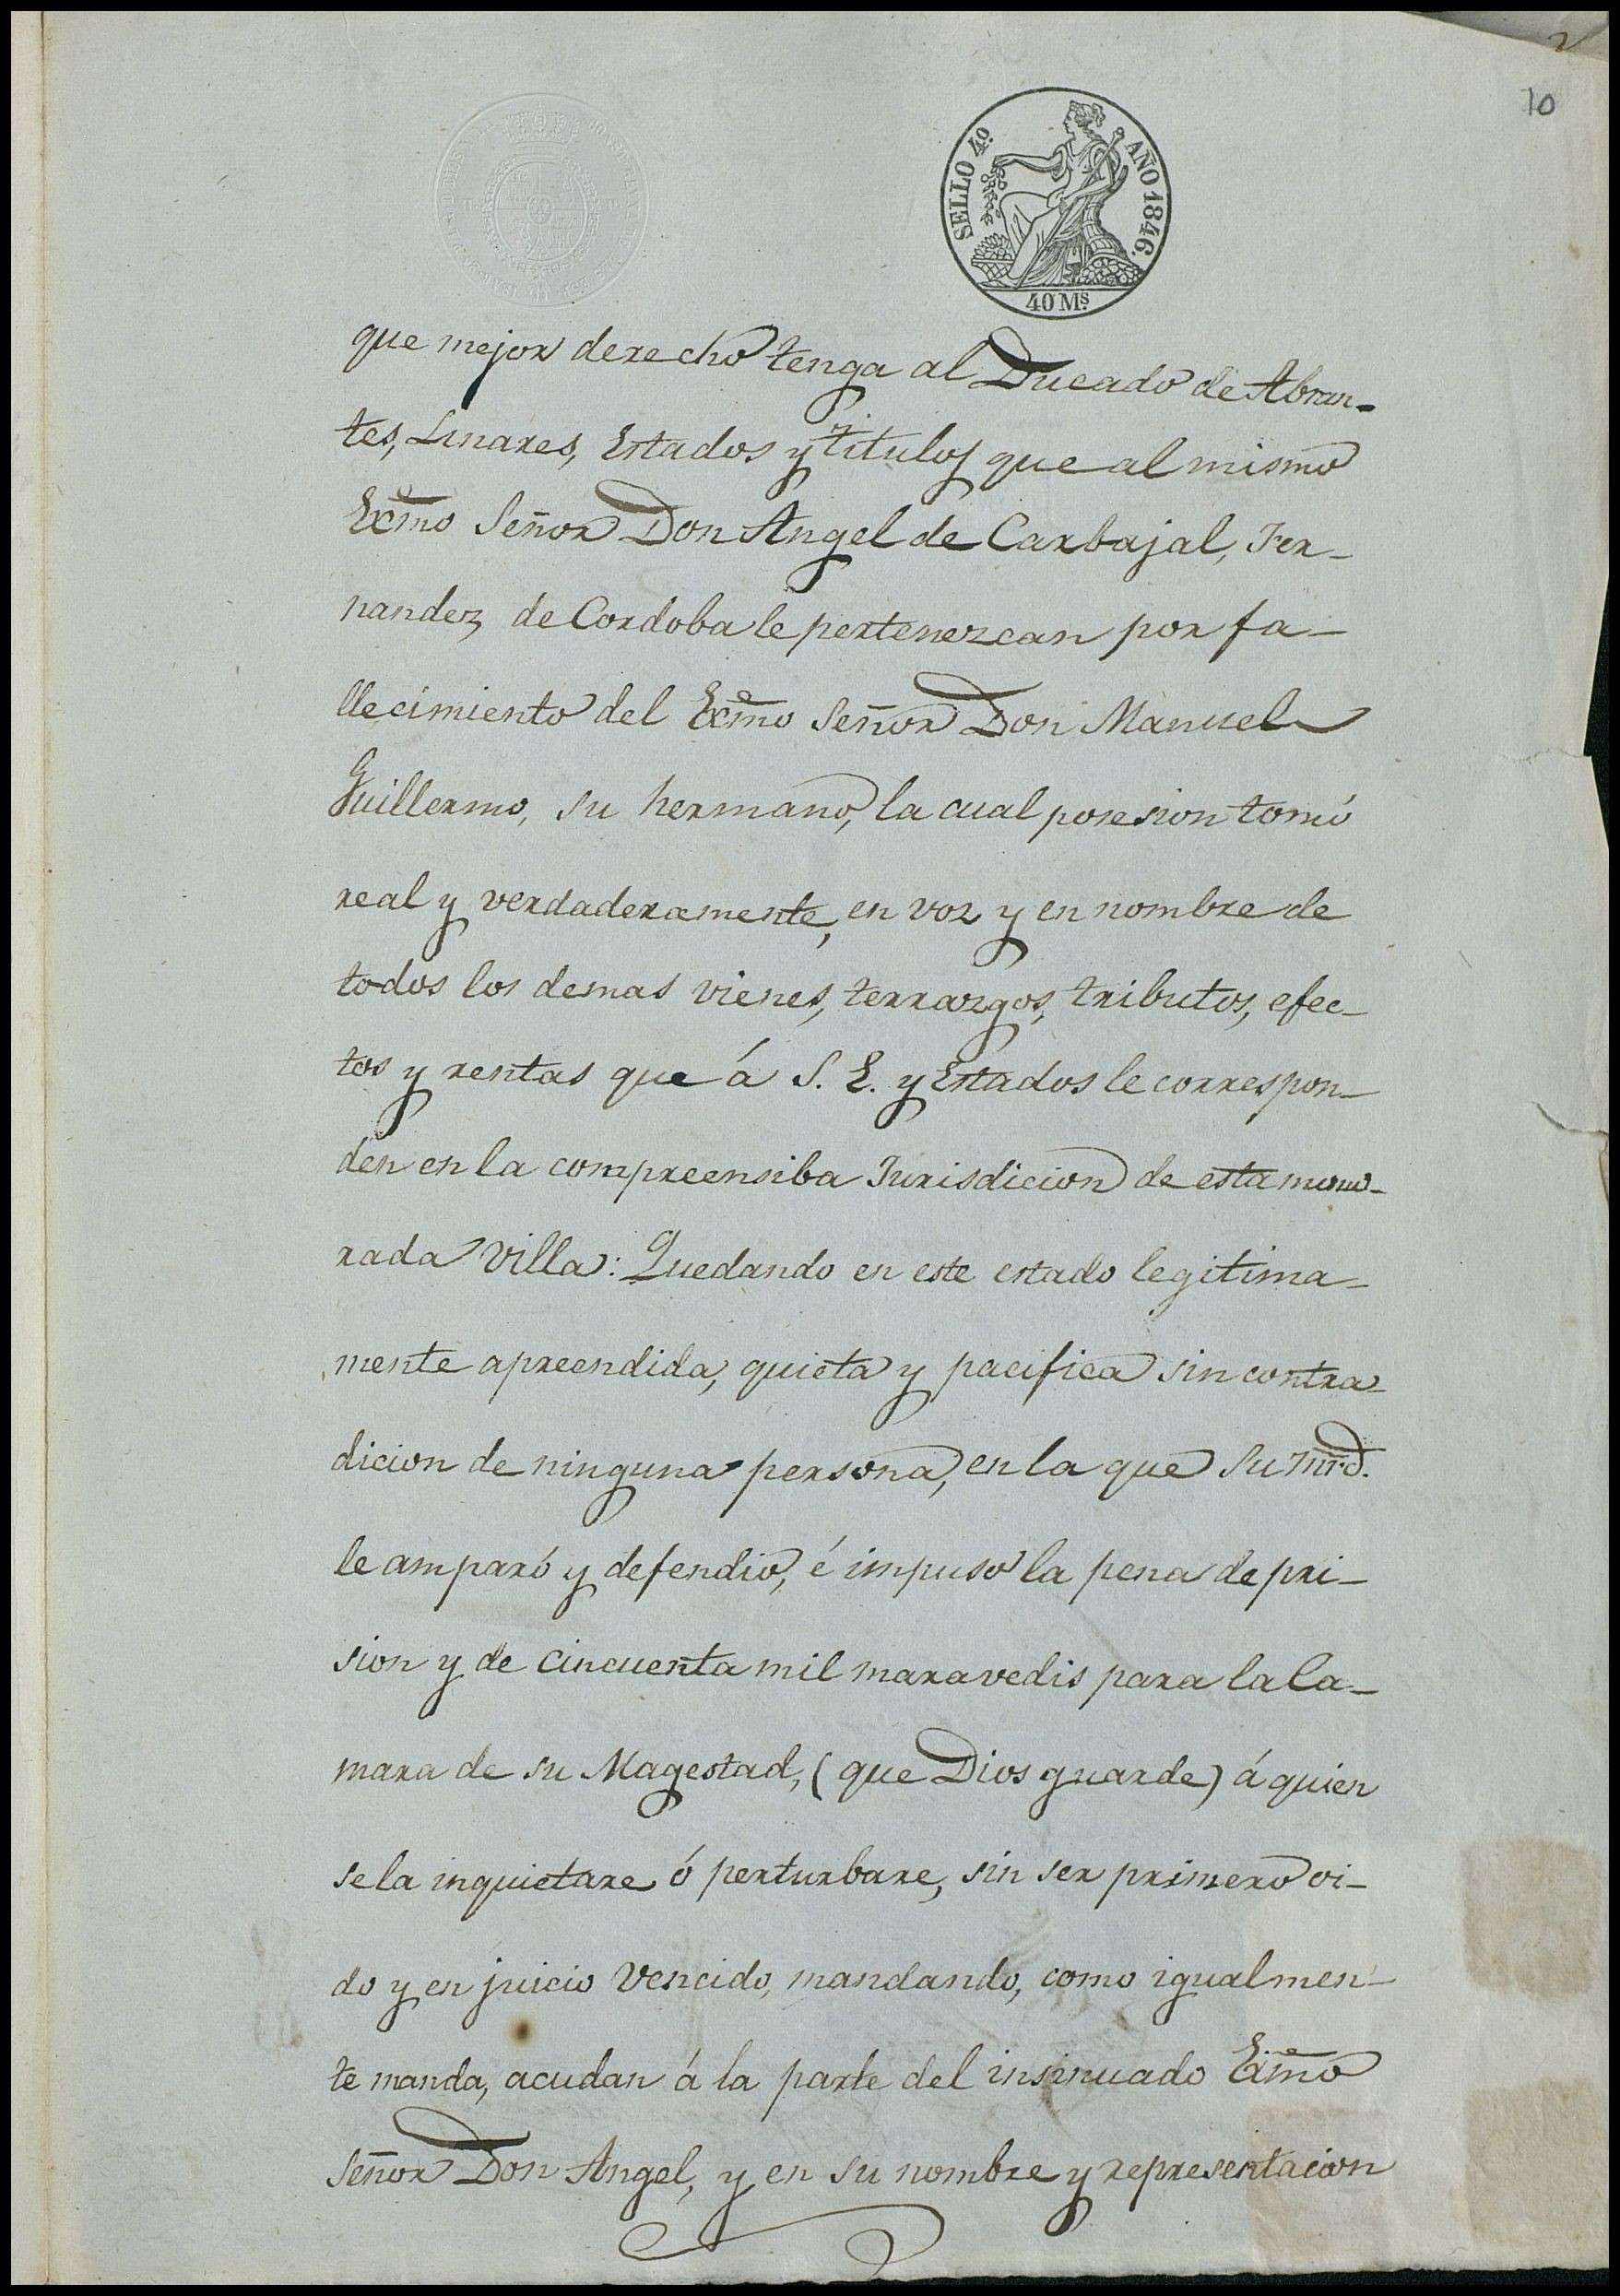 2
10
SELLO 4º. AÑO 1846.
40 Ms.
que mejor derecho tenga al Ducado de Abran-
tes, Linares, Estados y titulos que al mismo
Exmo Señor Don Angel de Carbajal, Fer-
nandez de Cordoba le pertenezcan por fa-
llecimiento del Exmo Señor Don Manuel
Guillermo, su hermano, la cual posesion tomó
real y verdaderamente, en voz y en nombre de
todos los demas vienes, terrazgos, tributos, efec-
tos y rentas que á S. E. y Estados le correspon-
den en la compreensiba Jurisdicion de esta
rada Villa: Quedando en este estado legitima-
mente apreendida, quieta y pacifica sin contra-
dicion de ninguna persona, en la que Su mrd.
le amparó y defendio, é impuso la pena de pri-
sion y de cincuenta mil maravedis para la Ca-
mara de su Magestad, (que Dios guarde) á quien
se la inquietare ó perturbare, sin ser primero oi-
do y en juicio vencido, mandando, como igualmen-
te manda, acudan á la parte del insinuado Exmo
Señor Don Angel, y en su nombre y representacion